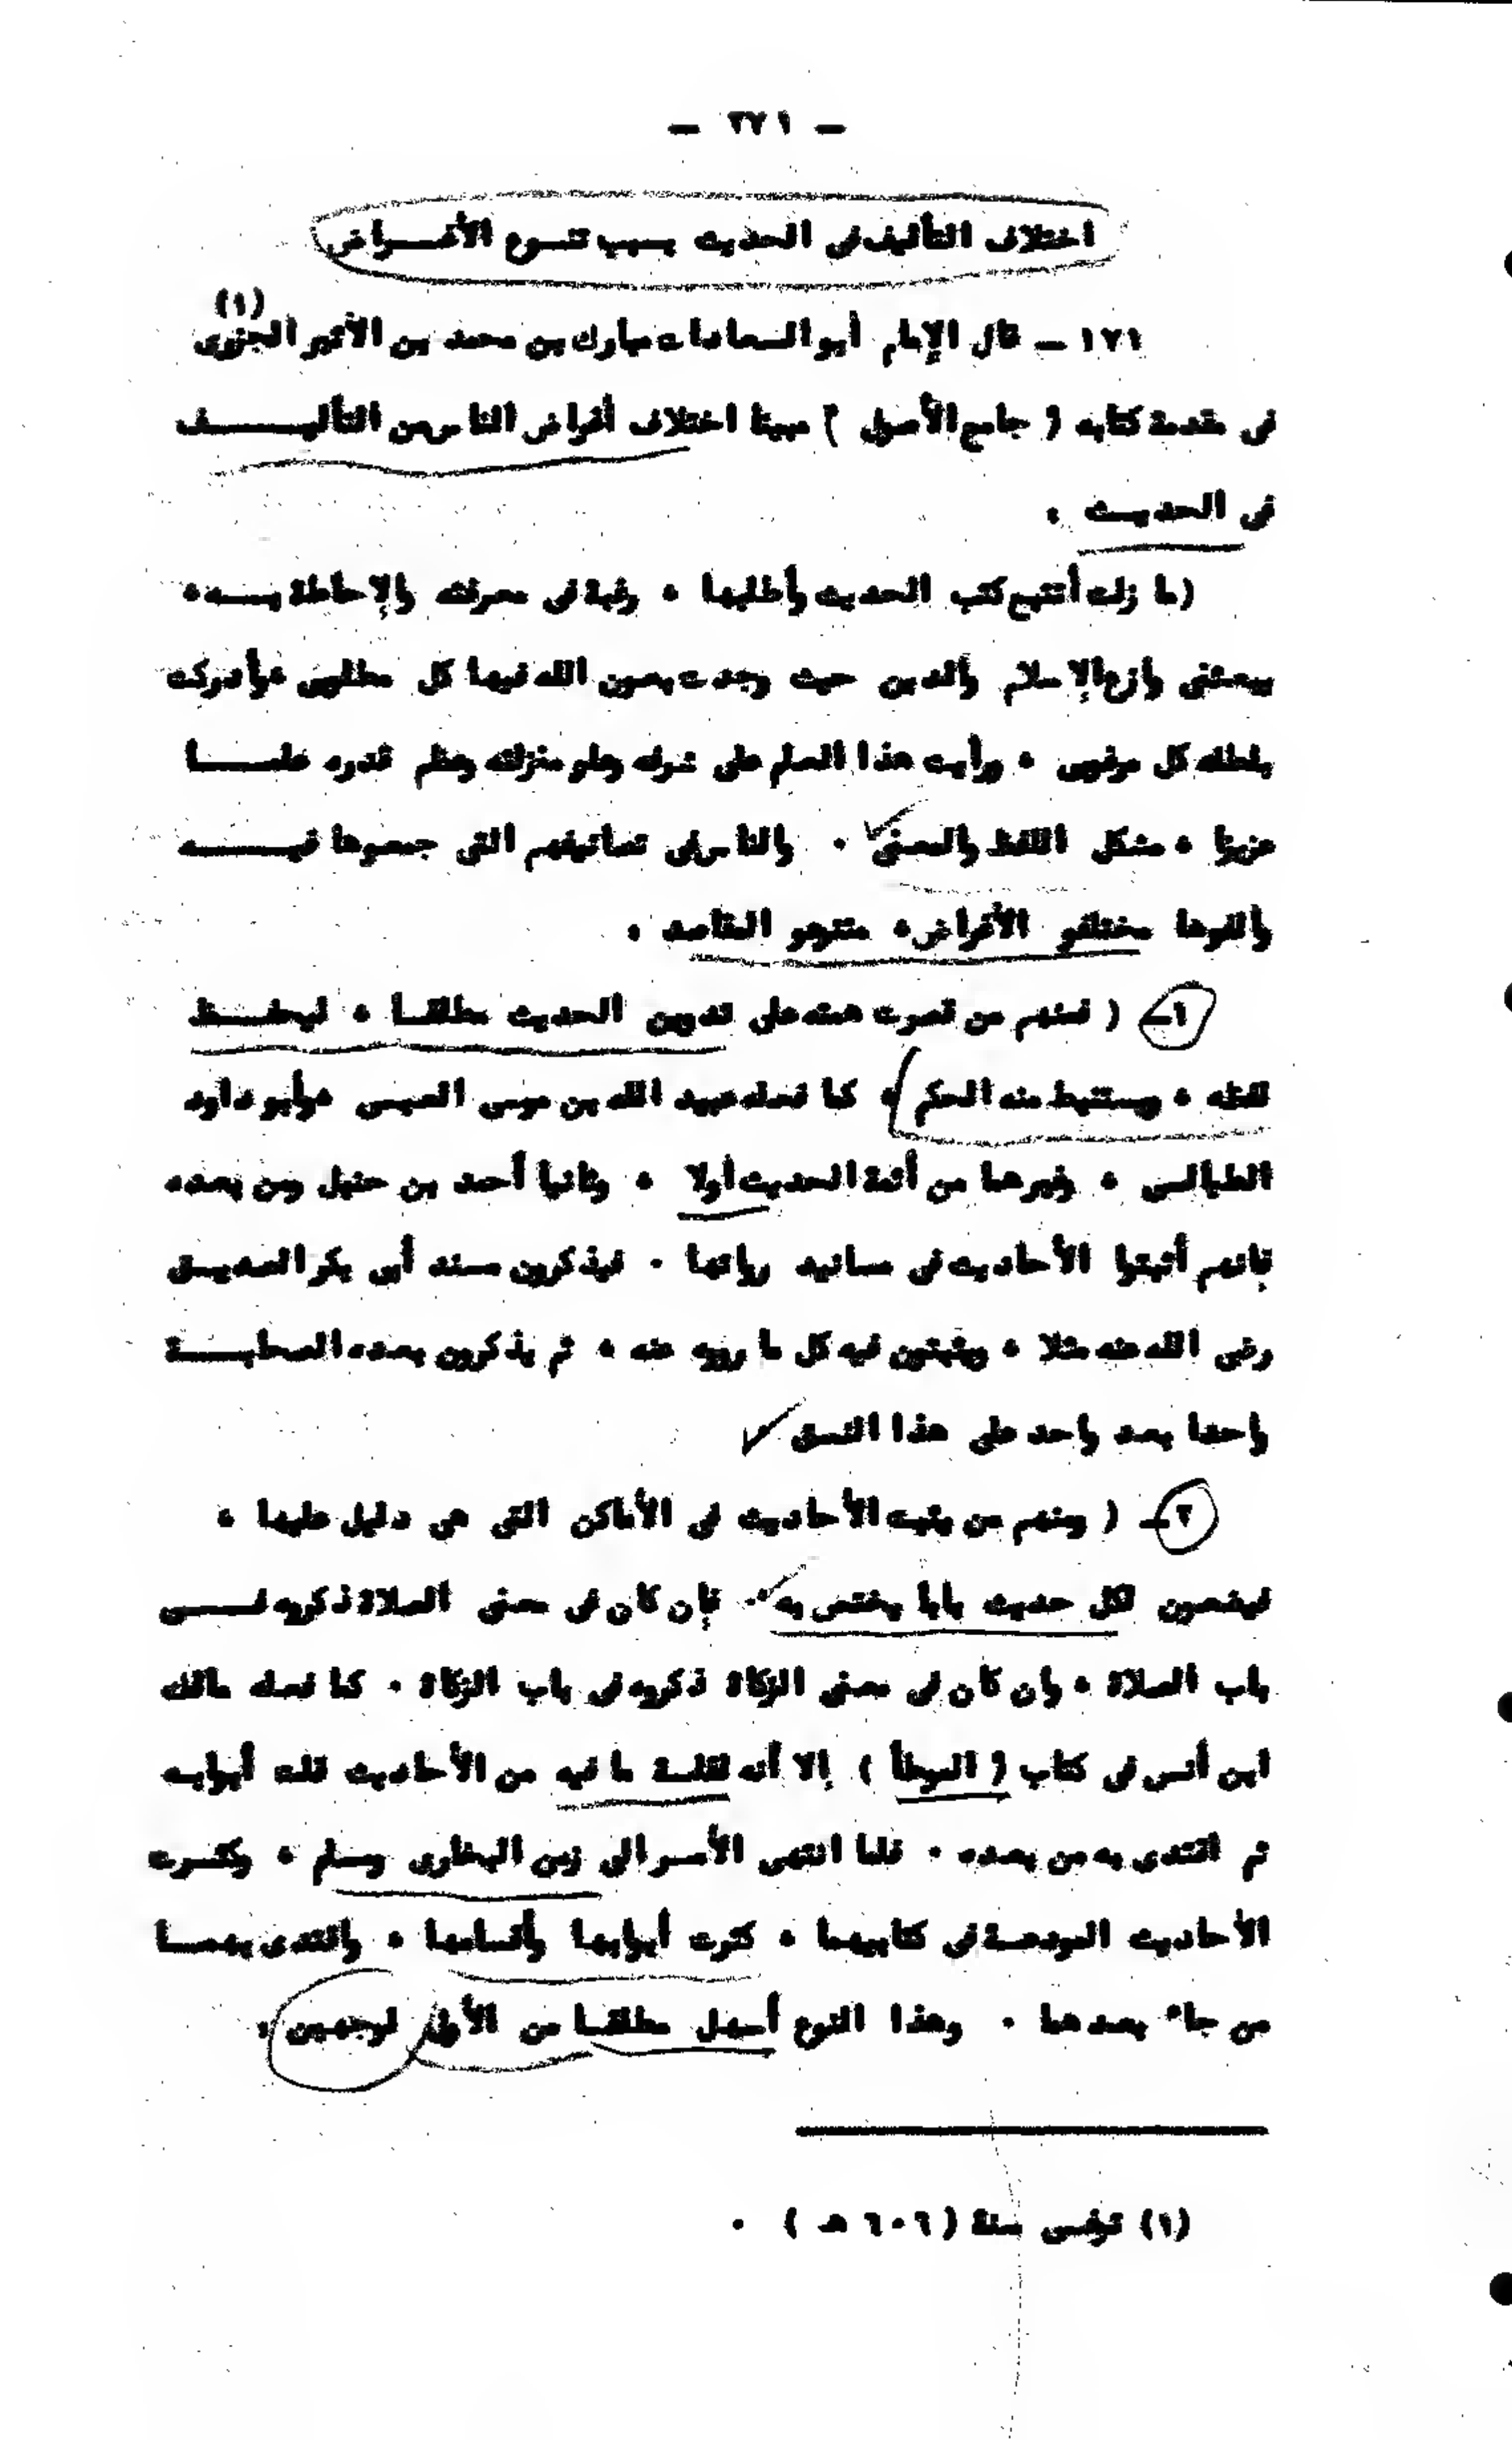 — ٣٧١ —
اختلاف التأليف في الحديث بسبب تنوع الأغراض
١٧١ — قال الإمام أبو السعادات مبارك بن محمد بن الأثير الجزري (١)
في مقدمة كتابه ( جامع الأصول ) مبينا اختلاف أغراض الناس من التأليف
في الحديث :
(ما زلت أتتبع كتب الحديث وأطلبها ، رغبة في معرفته والإحاطة به ،
يبعثني وازع الإسلام والدين حيث وجدت بعون الله فيها كل مطلوب ، وأدركت
كل مرغوب ، ورأيت هذا العلم على شرفه وعلو منزلته وعظم قدره علما
عزيزا ، مشكل اللفظ والمعنى . والناس في تصانيفهم التي جمعوها فيه
وألفوها مختلفو الأغراض ، متنوعو المقاصد :
١— ( فمنهم من قصرت همته على تدوين الحديث مطلقا ، ليحفظ
لفظه ، ويستنبط منه الحكم ، كما فعله عبيد الله بن موسى العبسي ، وأبو داود
الطيالسي ، وغيرهما من أئمة الحديث أولا ، وثانيا أحمد بن حنبل ومن بعده
فإنهم أثبتوا الأحاديث في مسانيد رواتها . فيذكرون مسند أبي بكر الصديق
رضي الله عنه مثلا ، ويثبتون فيه كل ما رووه عنه ، ثم يذكرون بعده الصحابة
واحدا بعد واحد على هذا النسق
٢— ( ومنهم من يثبت الأحاديث في الأماكن التي هي دليل عليها ،
فيضعون لكل حديث بابا يختص به . فإن كان في معنى الصلاة ذكروه في
باب الصلاة ، وإن كان في معنى الزكاة ذكروه في باب الزكاة . كما فعله مالك
ابن أنس في كتاب ( الموطأ ) إلا أنه لقلة ما فيه من الأحاديث قلت أبوابه
ثم اقتدى به من بعده . فلما انتهى الأمر الى زمن البخاري ومسلم ، وكثرت
الأحاديث المودعة في كتابيهما ، كثرت أبوابها وأقسامها ، واقتدى بهما
من جاء بعدهما . وهذا النوع أسهل مطلقا من الأول لوجهين :
(١) توفي سنة (٦٠٦ هـ ) .